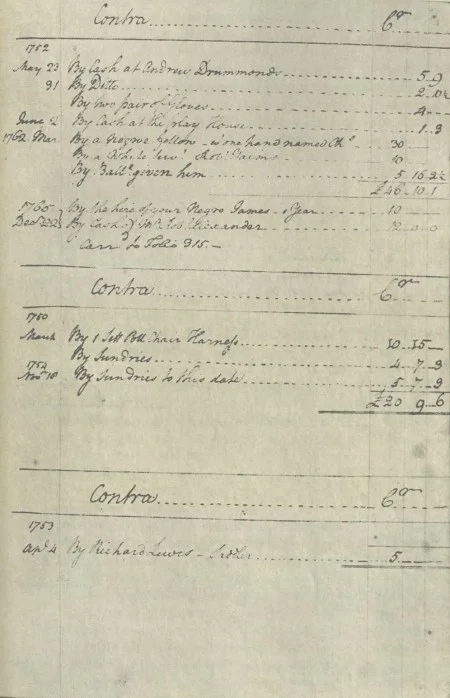 Contra Cr
1752
May 23 By Cash at Andrew Drummonds 5 9
31 By Ditto 2 10½
By two pair of Gloves 4
June 2 By Cash at the Play House 1 3
1762 Mar By a Negroe fellow one hand named 30
By a 10
By Ball.e given him 5 16 2½
£46 10 1
1765 By the hire of your Negro James 1 Year 10
Dec By Cash of Mr Alexander 0 0
Carr.d to Folio 315
Contra Cr
1750
March By 1 Sett Pott Chair Harness 10 15
By Sundries 4 7 9
1752
Nov 18 By Sundries to this date 5 7 9
£20 9 6
Contra Cr
1753
Apl 4 By Richard Lewis 5